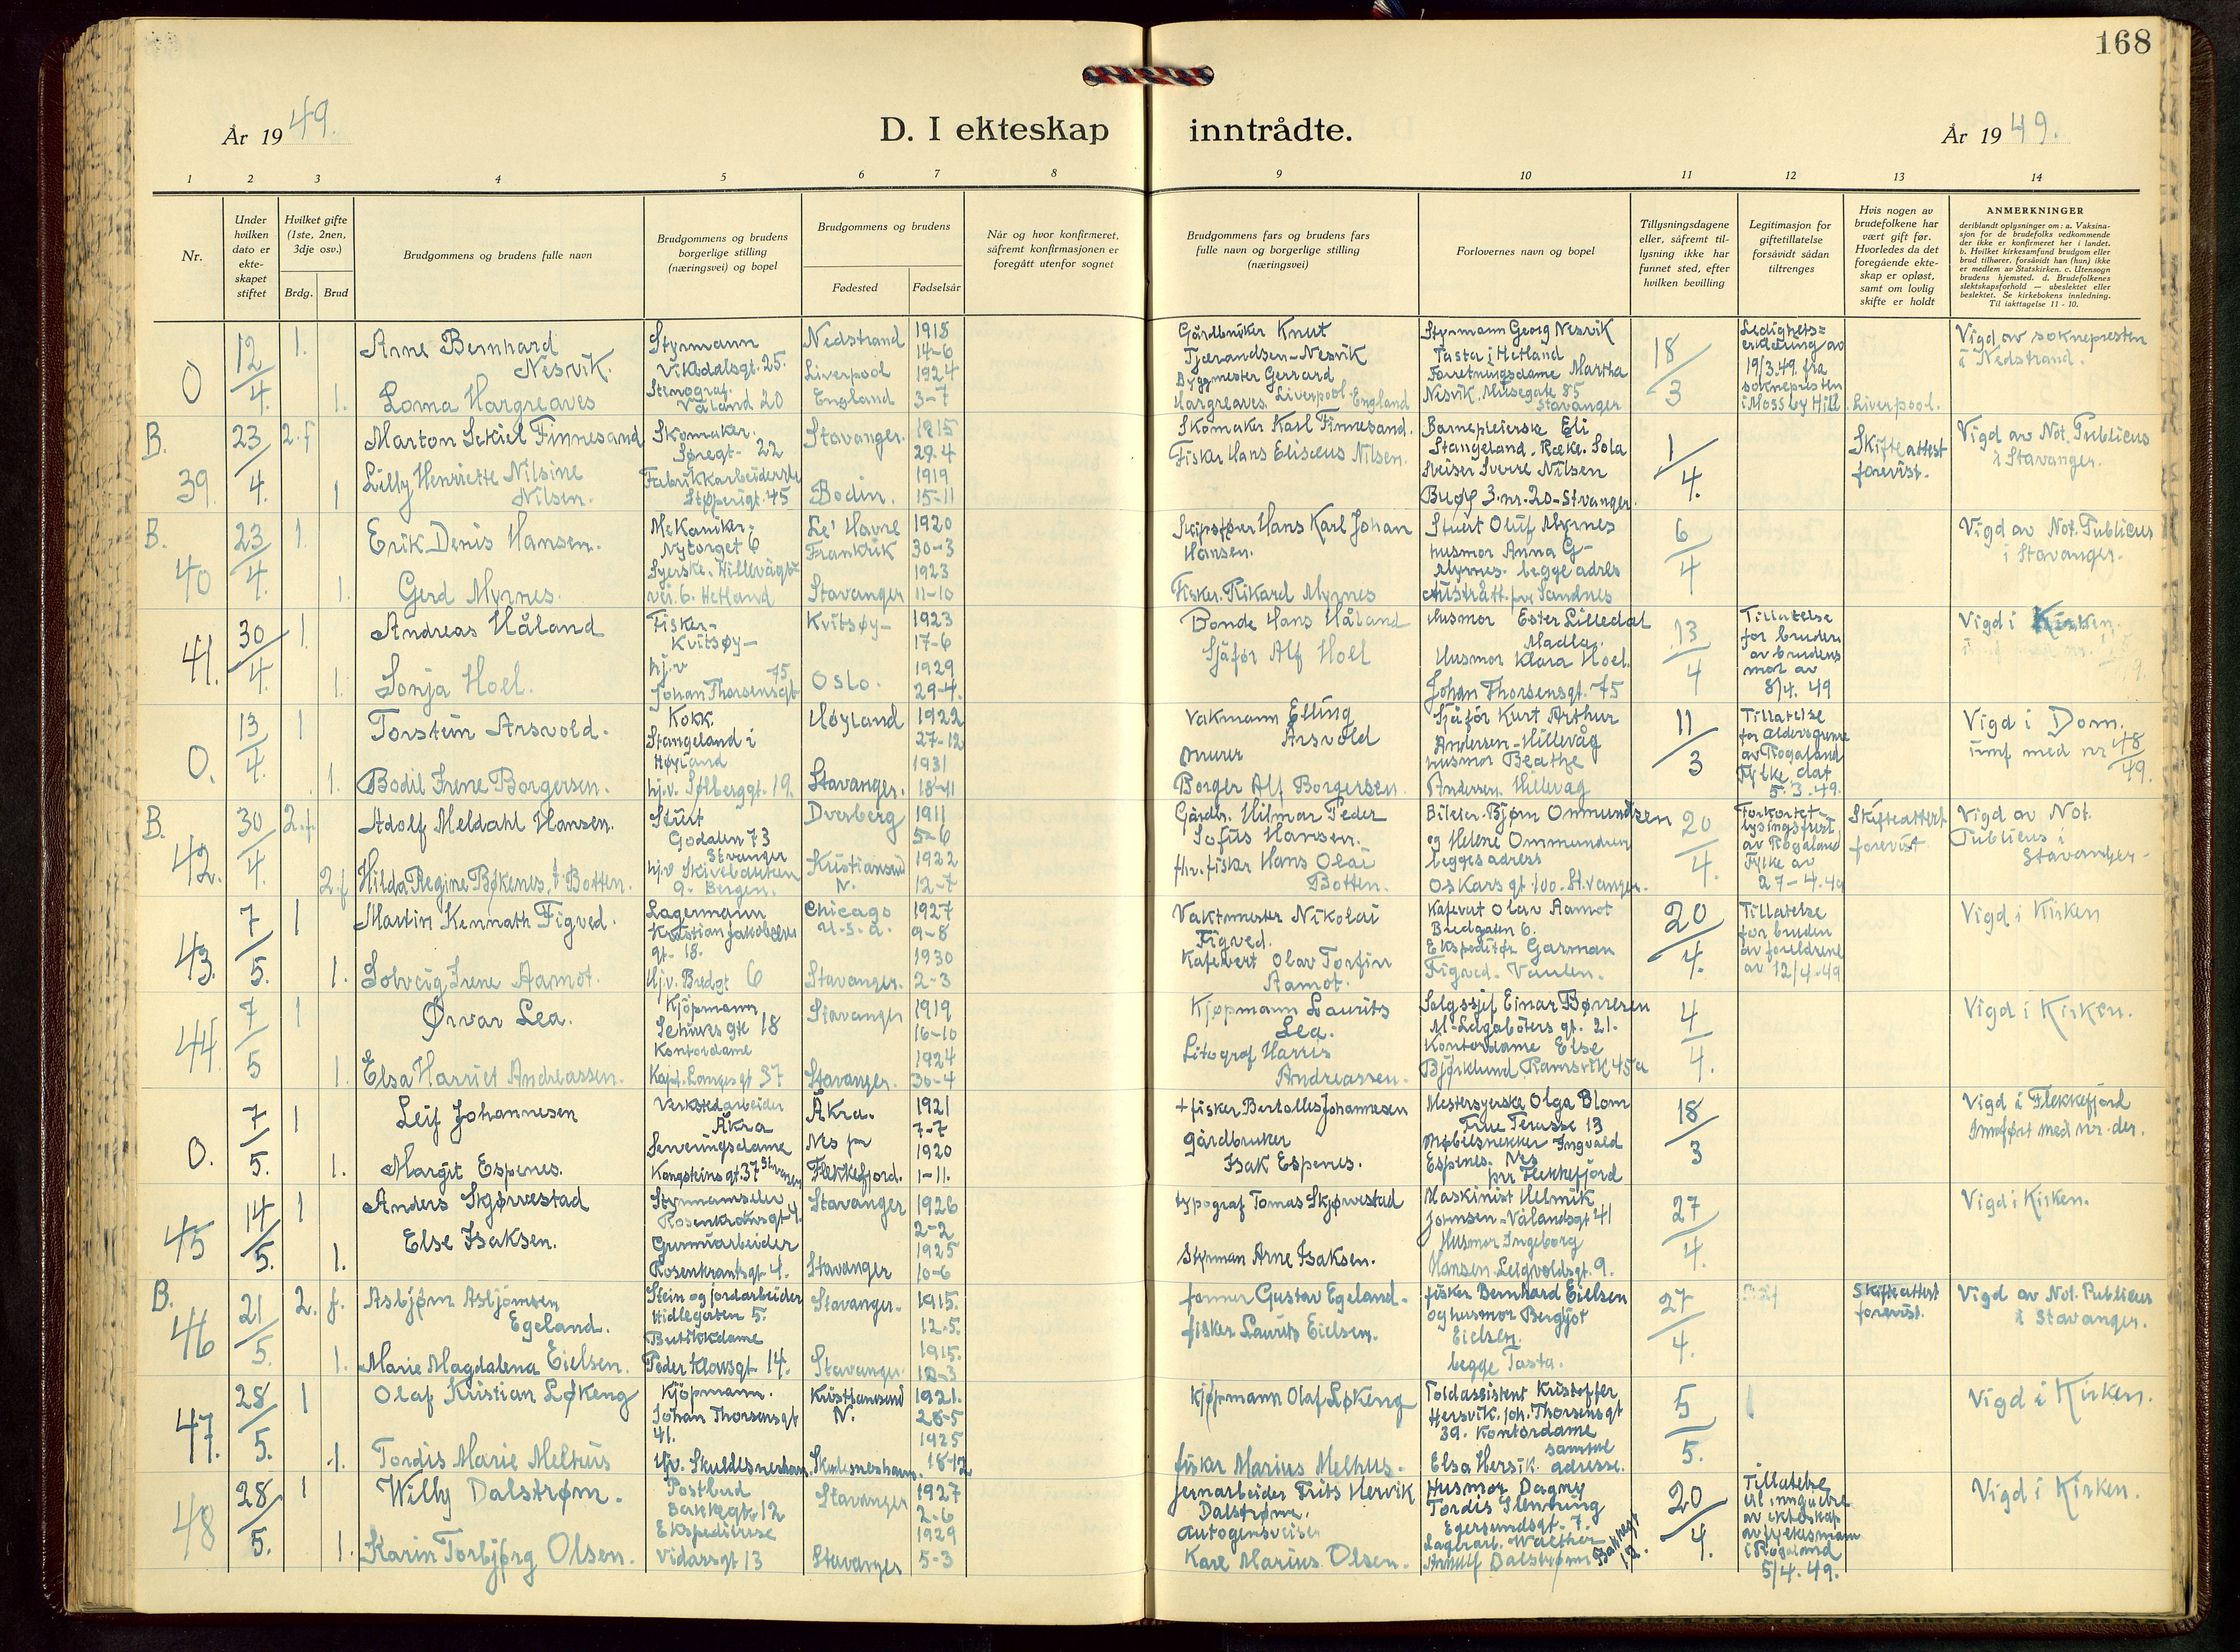 168
År 1949.
D. I ekteskap inntrådte.
År 1949.
1 2 3 4 5 6 7 8 9 10 11 12 13 14
Nr.
Under hvilken dato er ekte-skapet stiftet
Hvilket gifte (1ste, 2nen, 3dje osv.)
Brdg. Brud
Brudgommens og brudens fulle navn
Brudgommens og brudens borgerlige stilling (næringsvei) og bopel
Brudgommens og brudens
Fødested Fødselsår
Når og hvor konfirmeret, såfremt konfirmasjonen er foregått utenfor sognet
Brudgommens fars og brudens fars fulle navn og borgerlige stilling (næringsvei)
Forlovernes navn og bopel
Tillysningsdagene eller, såfremt til-lysning ikke har funnet sted, efter hvilken bevilling
Legitimasjon for giftetillatelse forsåvidt sådan tiltrenges
Hvis nogen av brudefolkene har vært gift før. Hvorledes da det foregående ekte-skap er opløst, samt om lovlig skifte er holdt
ANMERKNINGER
deriblandt oplysninger om: a. Vaksina-sjon for de brudefolks vedkommende der ikke er konfirmeret her i landet. b. Hvilket kirkesamfund brudgom eller brud tilhører, forsåvidt han (hun) ikke er medlem av Statskirken. c. Utensogn brudens hjemsted. d. Brudefolkenes slektskapsforhold — ubeslektet eller beslektet. Se kirkebokens innledning. Til iakttagelse 11 - 10.
0 12/4. 1. Arne Bernhard Nesvik. Styrmann Vikedalsgt. 25. Nedstrand 1918 14-6
1. Lorna Hargreaves Stenograf. Våland 20 Liverpool England 1924 3-7
Gårdbruker Knut Tjerandsen-Nesvik
Byggmester Gerrard Hargreaves. Liverpool. England
Styrmann Georg Nesvik Tasta i Hetland
Forretningsdame Martha Nesvik. Musegate 85 Stavanger
18/3
Ledighets=erklæring av 19/3.49. fra soknepresten i Mossby Hill. Liverpool.
Vigd av soknepresten i Nedstrand.
B. 39. 23/4. 2.f Marton Sekiel Finnesand Skomaker. Søregt. 22 Stavanger. 1915 29-4
1 Lilly Henriette Nilsine Nilsen. Fabrikkarbeiderske Støperigt. 45 Bodin. 1919 15-11
Skomaker Karl Finnesand.
Fisker Hans Eliseus Nilsen.
Barnepleierske Eli Stangeland. Ræke. Sola
Sveiser Sverre Nilsen Bugø 3. nr. 20 - Stvanger.
1/4.
Skifteattest forevist.
Vigd av Not. Publicus i Stavanger.
B. 40 23/4. 1. Erik Denis Hansen. Mekaniker- Nytorget 6 Le' Havre Frankrik 1920 30-3
1. Gerd Myrnes. Syerske. Hillevågs-vei. 6. Hetland Stavanger 1923 11-10
Skipsfører Hans Karl Johan Hansen.
Fisker. Rikard Myrnes
Stuert Oluf Myrnes
husmor Anna G- Myrnes. begge adres Austrått. pr. Sandnes
6/4
Vigd av Not. Publicus i Stavanger.
41. 30/4. 1 Andreas Håland Fisker- Kvitsøy- Kvitsøy- 1923 17-6
1. Sonja Hoel. hj.v Johan Thorsensgt 75 Oslo. 1929 29-4.
Bonde Hans Håland
Sjåfør Alf Hoel
Husmor Ester Lilledal Madla.
Husmor Klara Hoel. Johan Thorsensgt. 75
13/4
Tillatelse for bruden av brudens mor av 8/4. 49
Vigd i Kirken.
0. 13/4. 1 Torstein Arsvold. Kokk. Stangeland i Høyland Høyland 1922 27-12
1. Bodil Irene Borgersen. hj.v. Sølberggt. 19. Stavanger. 1931 18-11
Vakmann Elling Arsvold
Murer Borger Alf Borgersen
Sjåfør Kurt Arthur Andersen-Hillevåg
husmor Beathe Andersen. Hillevåg
11/3
Tillatelse for aldersgrense av Rogaland Fylke. dat 5. 3. 49.
Vigd i Dom. innf med nr 48/49.
B. 42. 30/4. 2.f. Adolf Meldahl Hansen. Stuert Godalen 73 Stvanger Dverberg 1911 5-6
2.f Hilda Regine Bøkenes, f. Botten. hj.v Skivebakken 9. Bergen. Kristiansund N. 1922 12-7
Gårdbr. Hilmar Peder Sofus Hansen.
fhv. fisker Hans Olai Botten.
Bileier. Bjørn Ommundsen og Helene Ommundsen begges adress Oskarsgt 100. Stvanger.
20/4.
Forkortet lysingsfrist av Rogaland Fylke av 27-4-49
Skifteattest forevist.
Vigd av Not. Publicus i Stavanger-
43. 7/5. 1 Martin Kennath Figved. Lagermann Kristian Jakobsens gt- 18. Chicago U.S.a. 1927 9-8
1. Solveig Irene Aamot. Hj.v. Bredgt 6 Stavanger. 1930 2-3
Vaktmester Nikolai Figved.
Kafevert Olav Torfinn Aamot.
Kafevert Olav Aamot Bredgaten 6.
Ekspeditør Garman Figved. Vaulen.
20/4.
Tillatelse for bruden av foreldrene av 12/4-49
Vigd i Kirken
44. 7/5 1 Ørvar Lea. Kjøpmann Sehusks gte 18 Stavanger 1919 16-10
1. Elsa Harriet Andreassen. Kontordame Kapt. Langesgt 37 Stavanger. 1924 30-4
Kjøpmann Laurits Lea.
Litograf Harris Andreassen.
Salgssjef Einar Børresen M-Lagabøters gt. 21.
Kontordame Else Bjørklund Ramsvik 45a
4/4.
Vigd i Kirken.
0. 7/5. 1 Leif Johannesen Verkstedarbeider Åkra Åkra. 1921 7-7
1. Margit Espenes. Serveringsdame Kongsteinsgt. 37 Stvanger Nes pr Flekkefjord. 1920 1-11.
+ fisker. Bertolles Johannesen
gårdbruker Isak Espenes.
Mestersyerske Olga Blom True Terasse 13
Møbelsnekker Ingvald Espenes. Nes pr Flekkefjord
18/3
Vigd i Flekkefjord Innført med nr. der.
45 14/5. 1 Anders Skjørvestad Styrmannselev Rosenkransgt 4. Stavanger 1926 2-2
1. Else Isaksen. Gummiarbeider Rosenkrantsgt. 4. Stavanger 1925 10-6
typograf Tomas Skjørvestad
Styrman Arne Isaksen.
Maskinist Helmik Johnsen-Vålandsgt 41
Husmor Ingeborg Hansen Leigvoldsgt. 9.
27/4.
Vigd i Kirken.
B. 46 21/5. 2. f. Asbjørn Asbjørnsen Egeland. Stein og jordarbeider Hidlegaten 5. Stavanger. 1915. 12-5.
1. Marie Magdalena Eielsen. Butikkdame Peder Klowsgt 14. Stavanger. 1915.
former Gustav Egeland.
fisker Laurits Eielsen.
fisker Bernhard Eielsen og husmor Bergljot Eielsen. begge Tasta.
27/4.
Skifteattest forevist.
Vigd av Not. Publicus i Stavanger.
47. 28/5. 1 Olaf Kristian Løkeng Kjøpmann. Johan Thorsensgt 41. Kristiansund N. 1921. 28-5
1. Tordis Marie Melhus Hjv. Skuldesneshavn. Skudesneshavn. 1925 18-12
Kjøpmann Olaf Løkeng
fisker Marius Melhus.
Toldassistent Kristoffer Hersvik. Joh. Thorsensgt 39. Kontordame Elsa Hersik. samme adresse.
5/5.
Vigd i Kirken.
48 28/5. 1 Willy Dalstrøm. Postbud Bakkegt. 12 Stavanger 1927 2-6
1. Karin Torbjørg Olsen. Ekspeditrise Vidarsgt 13 Stavanger 1929 5-3
Jernarbeider Frits Hervik Dalstrøm.
Autogensveiser Kare Marius Olsen.
Husmor Dagny Tordis Flenning Egersundsgt. 7.
Lagerarb. Walther Arnulf Dalstrøm Bakkegt 12.
20/4.
Tillatelse til inngåelse av ekteskap av fylkesmann i Rogaland 5/4. 49.
Vigd i Kirken.